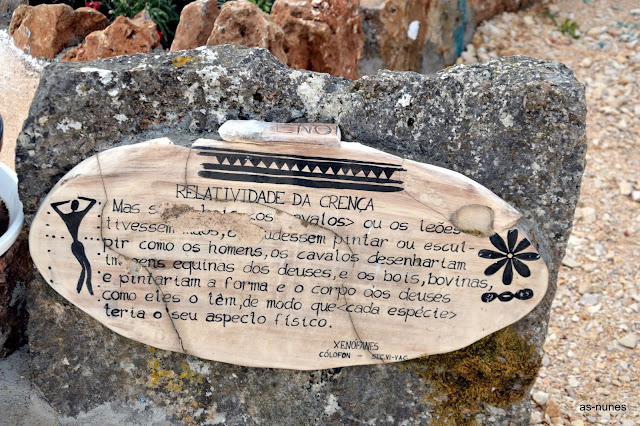 ENO
RELATIVIDADE DA CRENÇA
Mas s os cavalos> ou os leões
tivessem mãos, e pudessem pintar ou escul-
pir como os homens, os cavalos desenhariam
imagens equinas dos deuses, e os bois, bovinas,
e pintariam a forma e o corpo dos deuses
como eles o têm, de modo que <cada espécie>
teria o seu aspecto físico.
XENOFANES
CÓLOFON - SEC. VI-V A.C
as-nunes